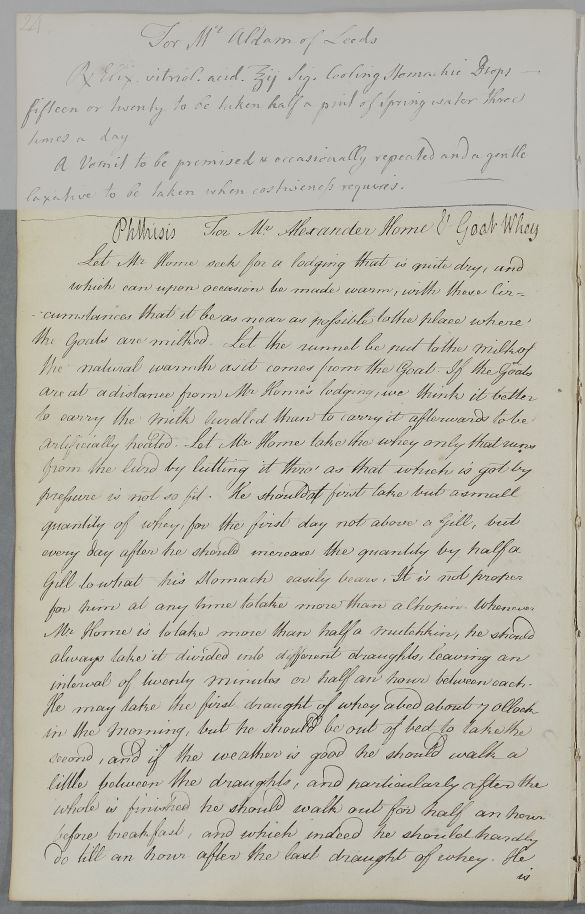 24
For Mr Aldam of Leeds
℞ Elix. vitriol. acid. ℥ij Sig. Cooling Stomachic Drops —
fifteen or twenty to be taken half a pint of spring water three
times a day
A Vomit to be premised & occasionally repeated and a gentle
laxative to be taken when costiveness requires.
Phthisis For Mr Alexander Home & Goat Whey
Let Mr Home seek for a lodging that is quite dry, and
which can upon occasion be made warm, with these Cir=
-cumstances that it be as near as possible to the place where
the Goats are milked. Let the runnet be put to the milk of
the natural warmth as it comes from the Goat. If the Goats
are at a distance from Mr Home's lodging, we think it better
to carry the milk curdled than to carry it afterwards to be
artificially heated. Let Mr Home take the whey only that runs
from the curd by cutting it thro' as that which is got by
pressure is not so fit. He should at first take but a small
quantity of whey, for the first day not above a Gill, but
every day after he should increase the quantity by half a
Gill to what his Stomach easily bears. It is not proper
for him at any time to take more than a Chopin. Whenever
Mr Home is to take more than half a mutchkin, he should
always take it divided into different draughts, leaving an
interval of twenty minutes or half an hour between each.
He may take the first draught of whey abed about 7 oClock
in the morning, but he should be out of bed to take the
second, and if the weather is good he should walk a
little between the draughts, and particularly after the
whole is finished he should walk out for half an hour
before breakfast, and which indeed he should hardly
do till an hour after the last draught of whey. He
is